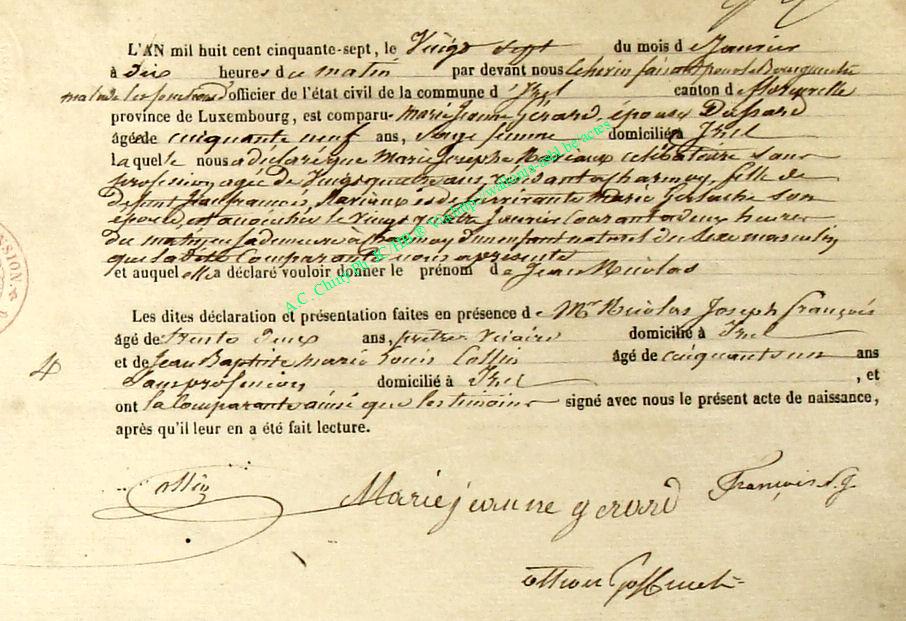 L'AN mil huit cent cinquante-sept, le Vingt Sept du mois d e Janvier
à Dix heures d u matin par devant nous Echevin faisant pour le Bourguemestre
malade les fonctions d'officier de l'état civil de la commune d' Izel canton d e Florenville
province de Luxembourg, est comparu e marie Jeanne Gérard, épouse Dussard
âgée de cinquante neuf ans, Sage femme domiciliée à Izel
laquelle nous a déclaré que Marie Josephe Mariaux célibataire sans
profession agée de Vingt quatre ans, résidant a charmoy, fille de
défunt Jean françois Mariaux et de survivante Marie Gerlache son
épouse, est accouchée le Vingt quatre Janvier courant a deux heures
du matin en sa demeure à Charmoy d'un enfant naturel du Sexe masculin
que la dite Comparante nous a présenté
et auquel elle a déclaré vouloir donner le prénom d e Jean Nicolas
Les dites déclaration et présentation faites en présence d e Mr Nicolas Joseph françois
âgé de trente Deux ans, prêtre Vicaire domicilié à Izel
et de Jean Baptiste marie Louis Collin âgé de cinquante un ans
Sans profession domicilié à Izel , et
ont la Comparante ainsi que les témoins signé avec nous le présent acte de naissance,
après qu'il leur en a été fait lecture.
4
Collin Marie jeanne gerard François N. J.
A.C. Chiny
http://walonia-asbl.be actes